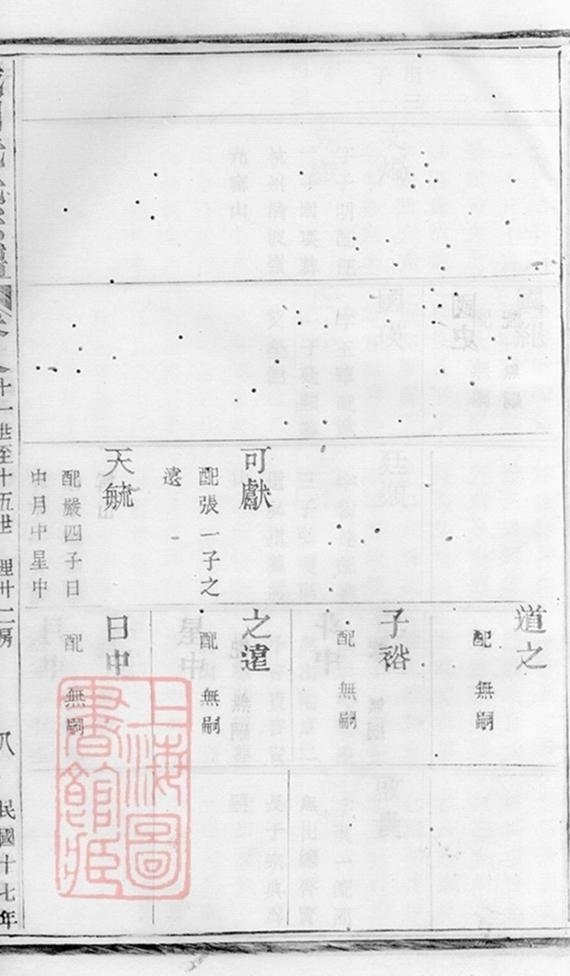 可獻
配張一子之
遠
天毓
配嚴四子日
中月中星中
道之
配　無嗣
子裕
配　無嗣
之遠
配　無嗣
日中
配　無嗣
十一世至十五世　理廿二房
八
民國十七年
上海圖
書館藏